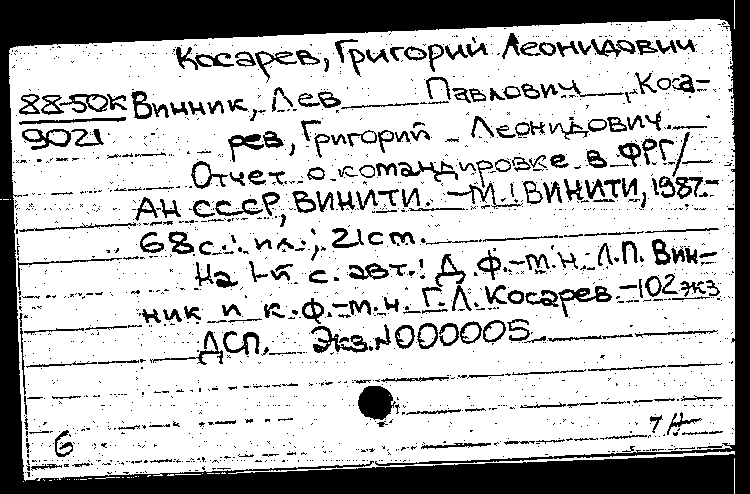 Косарев, Григорий Леонидович
88-50К Винник, Лев Павлович, Коса-
9021 рев, Григорий Леонидович.
Отчет о командировке в ФРГ/
АН СССР, ВИНИТИ. -М.: ВИНИТИ, 1987.-
68 с.: ил.; 21 cm.
На 1-й с. авт.: Д. ф.-т.н. Л.П. Вин-
ник и к.ф.-т.н. Г.Л. Косарев.-102 экз
ДСП. Экз. N 000005
6